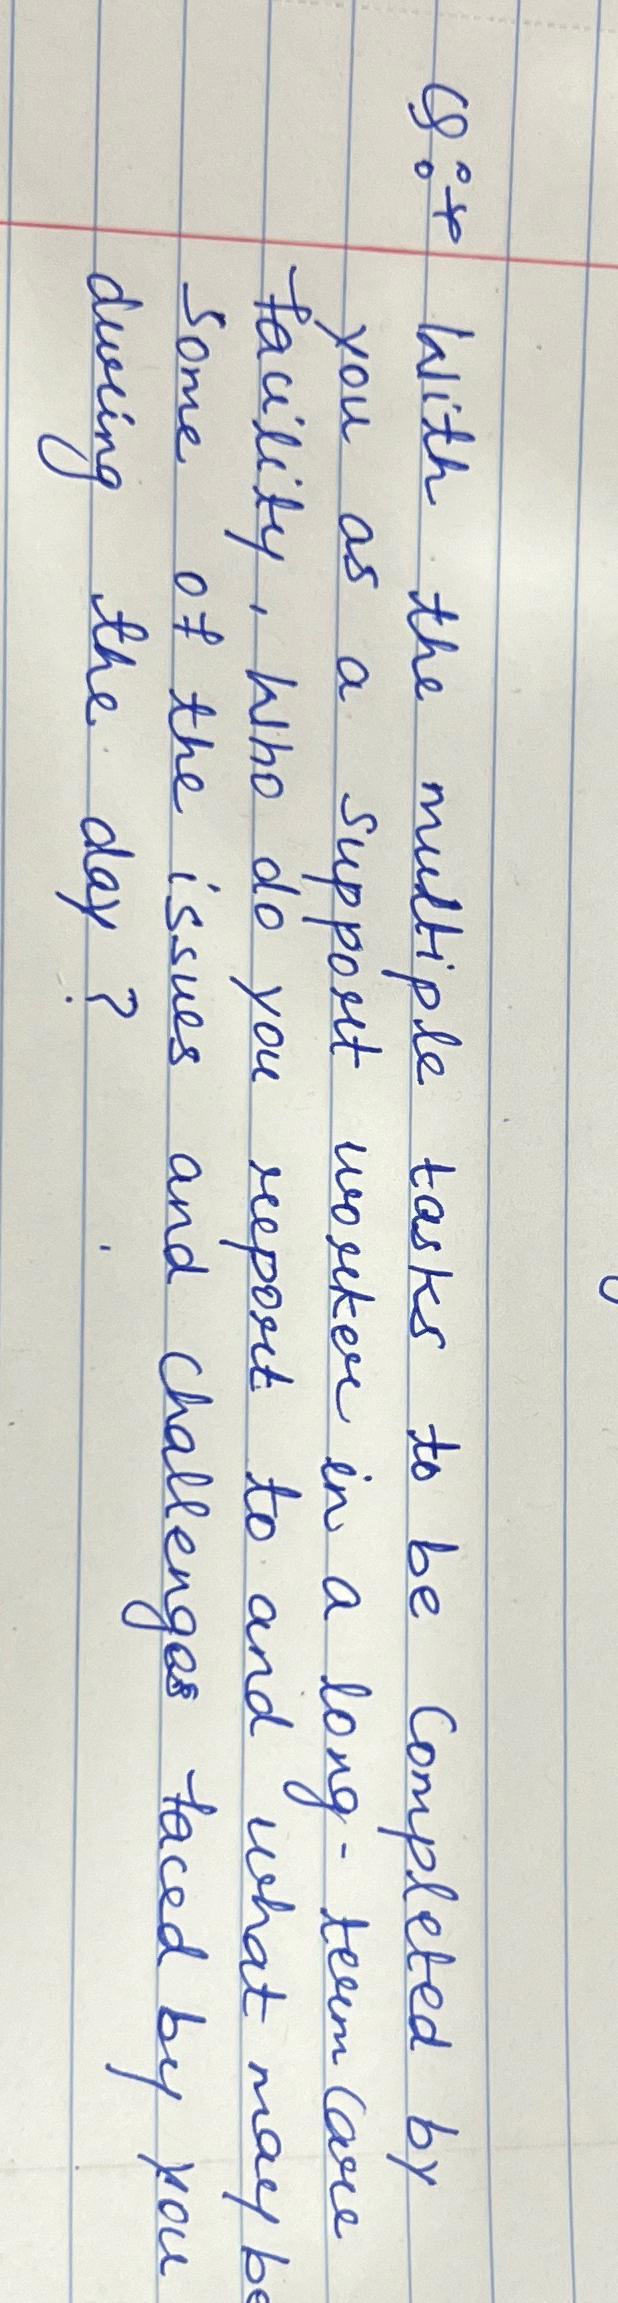 Q:→ With the multiple tasks to be completed by
you as a support worker in a long-term care
facility, who do you report to and what may be
some of the issues and challenges faced by you
during the day?